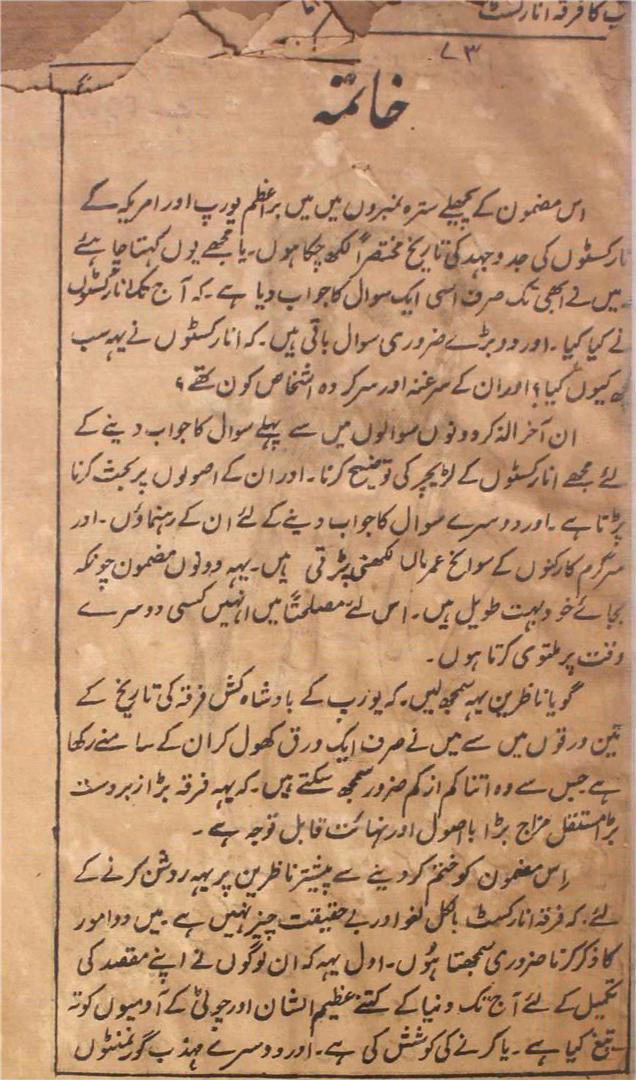 کا فرقہ انارکسٹ
۷۳
خاتمہ
اس مضمون کے پچھلے سترہ نمبروں میں میں براعظم یورپ اور امریکہ کے
نارکسٹوں کی جدوجہد کی تاریخ مختصراً لکھ چکا ہوں۔ یا مجھے یوں کہنا چاہئے
میں نے ابھی تک صرف اسی ایک سوال کا جواب دیا ہے۔ کہ آج تک انارکسٹوں
نے کیا کیا۔ اور دو بڑے ضروری سوال باقی ہیں۔ کہ انارکسٹوں نے یہہ سب
کیوں کیا؟ اور ان کے سرغنہ اور سرکردہ اشخاص کون تھے؟
ان آخر الذکر دونوں سوالوں میں سے پہلے سوال کا جواب دینے کے
لئے مجھے انارکسٹوں کے لڑیچر کی توضیح کرنا۔ اور ان کے اصولوں پر بحث کرنا
پڑتا ہے۔ اور دوسرے سوال کا جواب دینے کے لئے ان کے رہنماؤں۔ اور
سرگرم کارکنوں کے سوانح عمریاں لکھنی پڑتی ہیں۔ یہہ دونوں مضمون چونکہ
بجائے خود بہت طویل ہیں۔ اس لئے مصلحتاً میں انہیں کسی دوسرے
وقت پر ملتوی کرتا ہوں۔
گویا ناظرین یہہ سمجھ لیں۔ کہ یورپ کے بادشاہ کش فرقہ کی تاریخ کے
تین ورقوں میں سے میں نے صرف ایک ورق کھول کر ان کے سامنے رکھا
ہے جس سے وہ اتنا کم از کم ضرور سمجھ سکتے ہیں۔ کہ یہہ فرقہ بڑا زبردست
بڑا مستقل مزاج بڑا بااصول اور نہائت قابل توجہ ہے۔
اِس مضمون کو ختم کر دینے سے پیشتر ناظرین پر یہہ روشن کرنے کے
لئے۔ کہ فرقہ انارکسٹ بالکل لغو اور بے حقیقت چیز نہیں ہے۔ میں دو امور
کا ذکر کرنا ضروری سمجھتا ہوں۔ اول یہہ کہ ان لوگوں نے اپنے مقصد کی
تکمیل کے لئے آج تک دنیا کے کتنے عظیم الشان اور چوٹی کے آدمیوں کو تہ
تیغ کیا ہے۔ یا کرنے کی کوشش کی ہے۔ اور دوسرے مہذب گورنمنٹوں